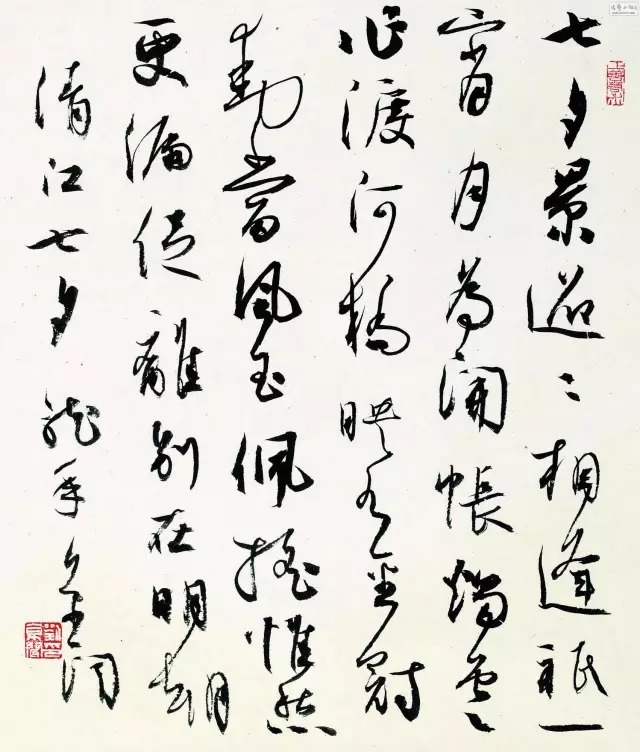 七夕景迢〻相逢祇一
宵月為開帳燭雲
作渡河橋映水金冠
動當風玉佩搖惟愁
更漏促離別在明朝
清江七夕龍年